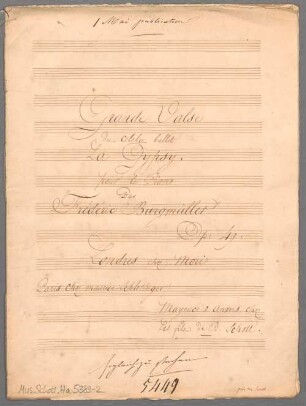 1 Mai publication
Grande Valse
du célèbre ballet
La Gypsy
pour le Piano
Par
Frédéric Burgmüller
Op: 49.
Londres chez Mori
Paris chez
Mayence & Anvers chez
les fils de B Schott.
5449
Mus.Schott.Ha 5389-2